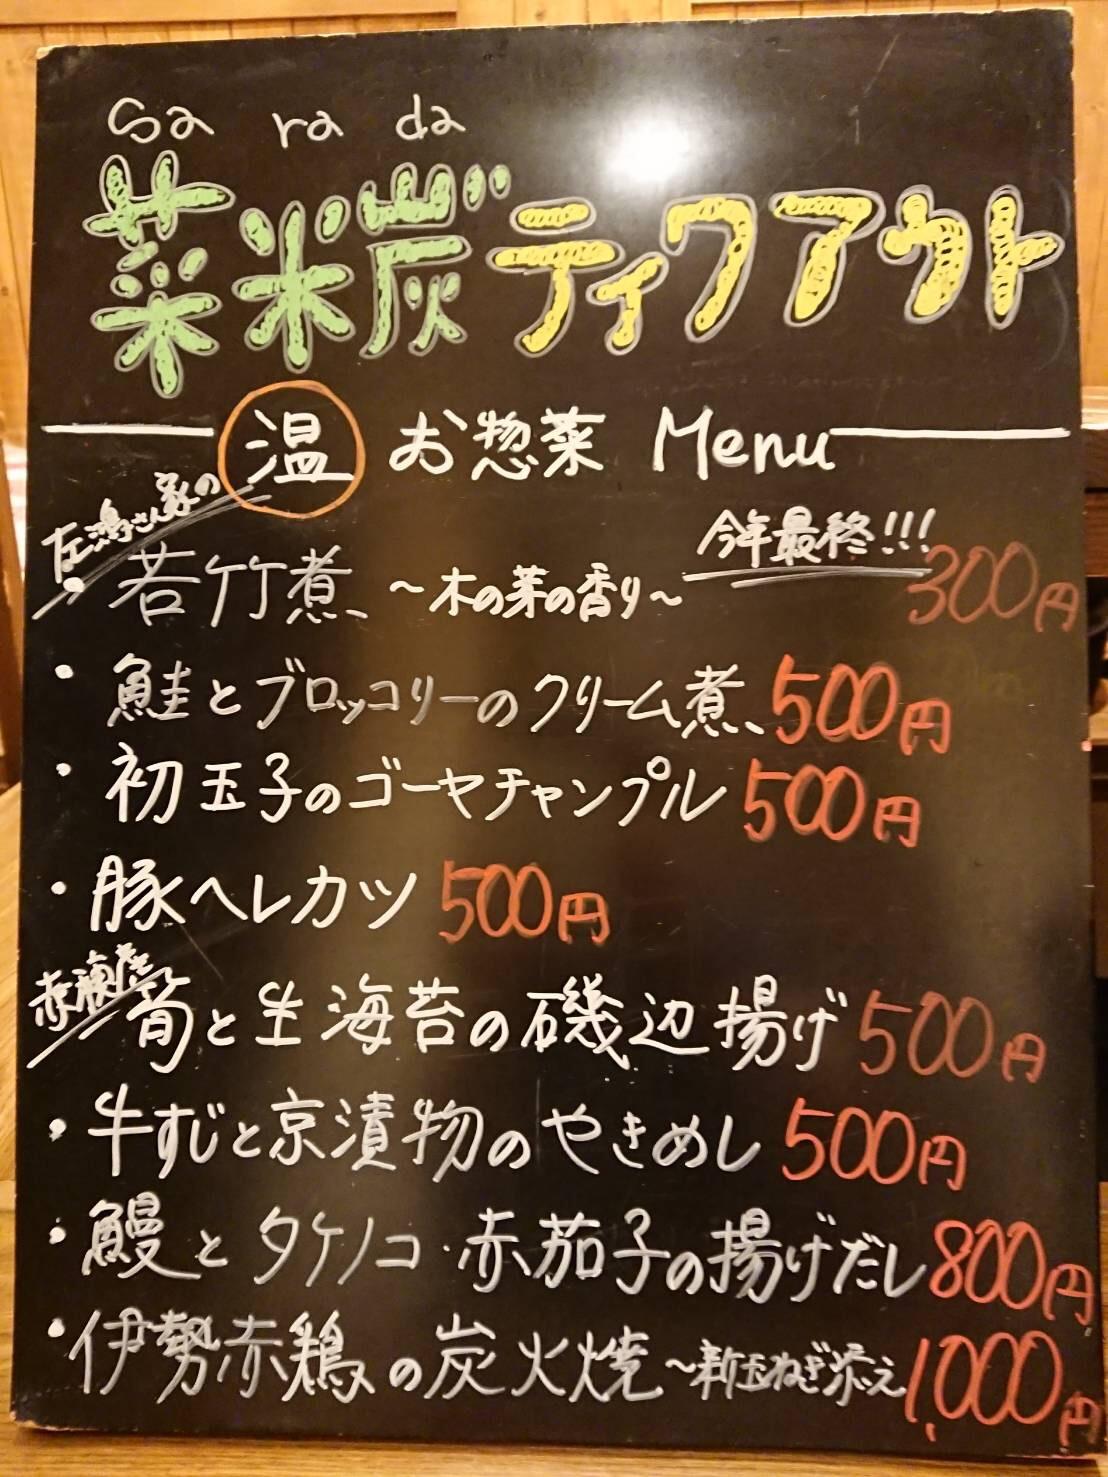 Sa ra da
菜米炭゛ティクアウト
温 お惣菜 Menu
さん家の
今年最終!!!
・若竹煮 〜木の芽の香り〜 300円
・鮭とブロッコリーのクリーム煮 500円
・初玉子のゴーヤチャンプル 500円
・豚ヘレカツ 500円
赤穂産
筍と生海苔の磯辺揚げ 500円
・牛すじと京漬物のやきめし 500円
・鰻とタケノコ・赤茄子の揚げだし 800円
・伊勢赤鶏の炭火焼〜新玉ねぎ添え 1,000円